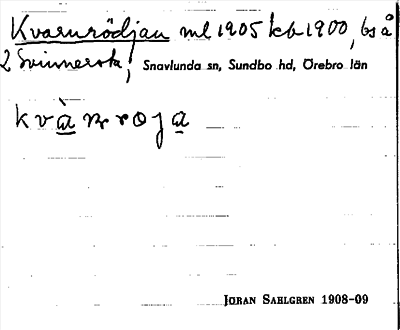 Kvarnrödjan ml 1905 kb 1900, bs å
2 Svinnersta, Snavlunda sn, Sundbo hd, Örebro län
kvàn roja
JÖRAN SAHLGREN 1908-09